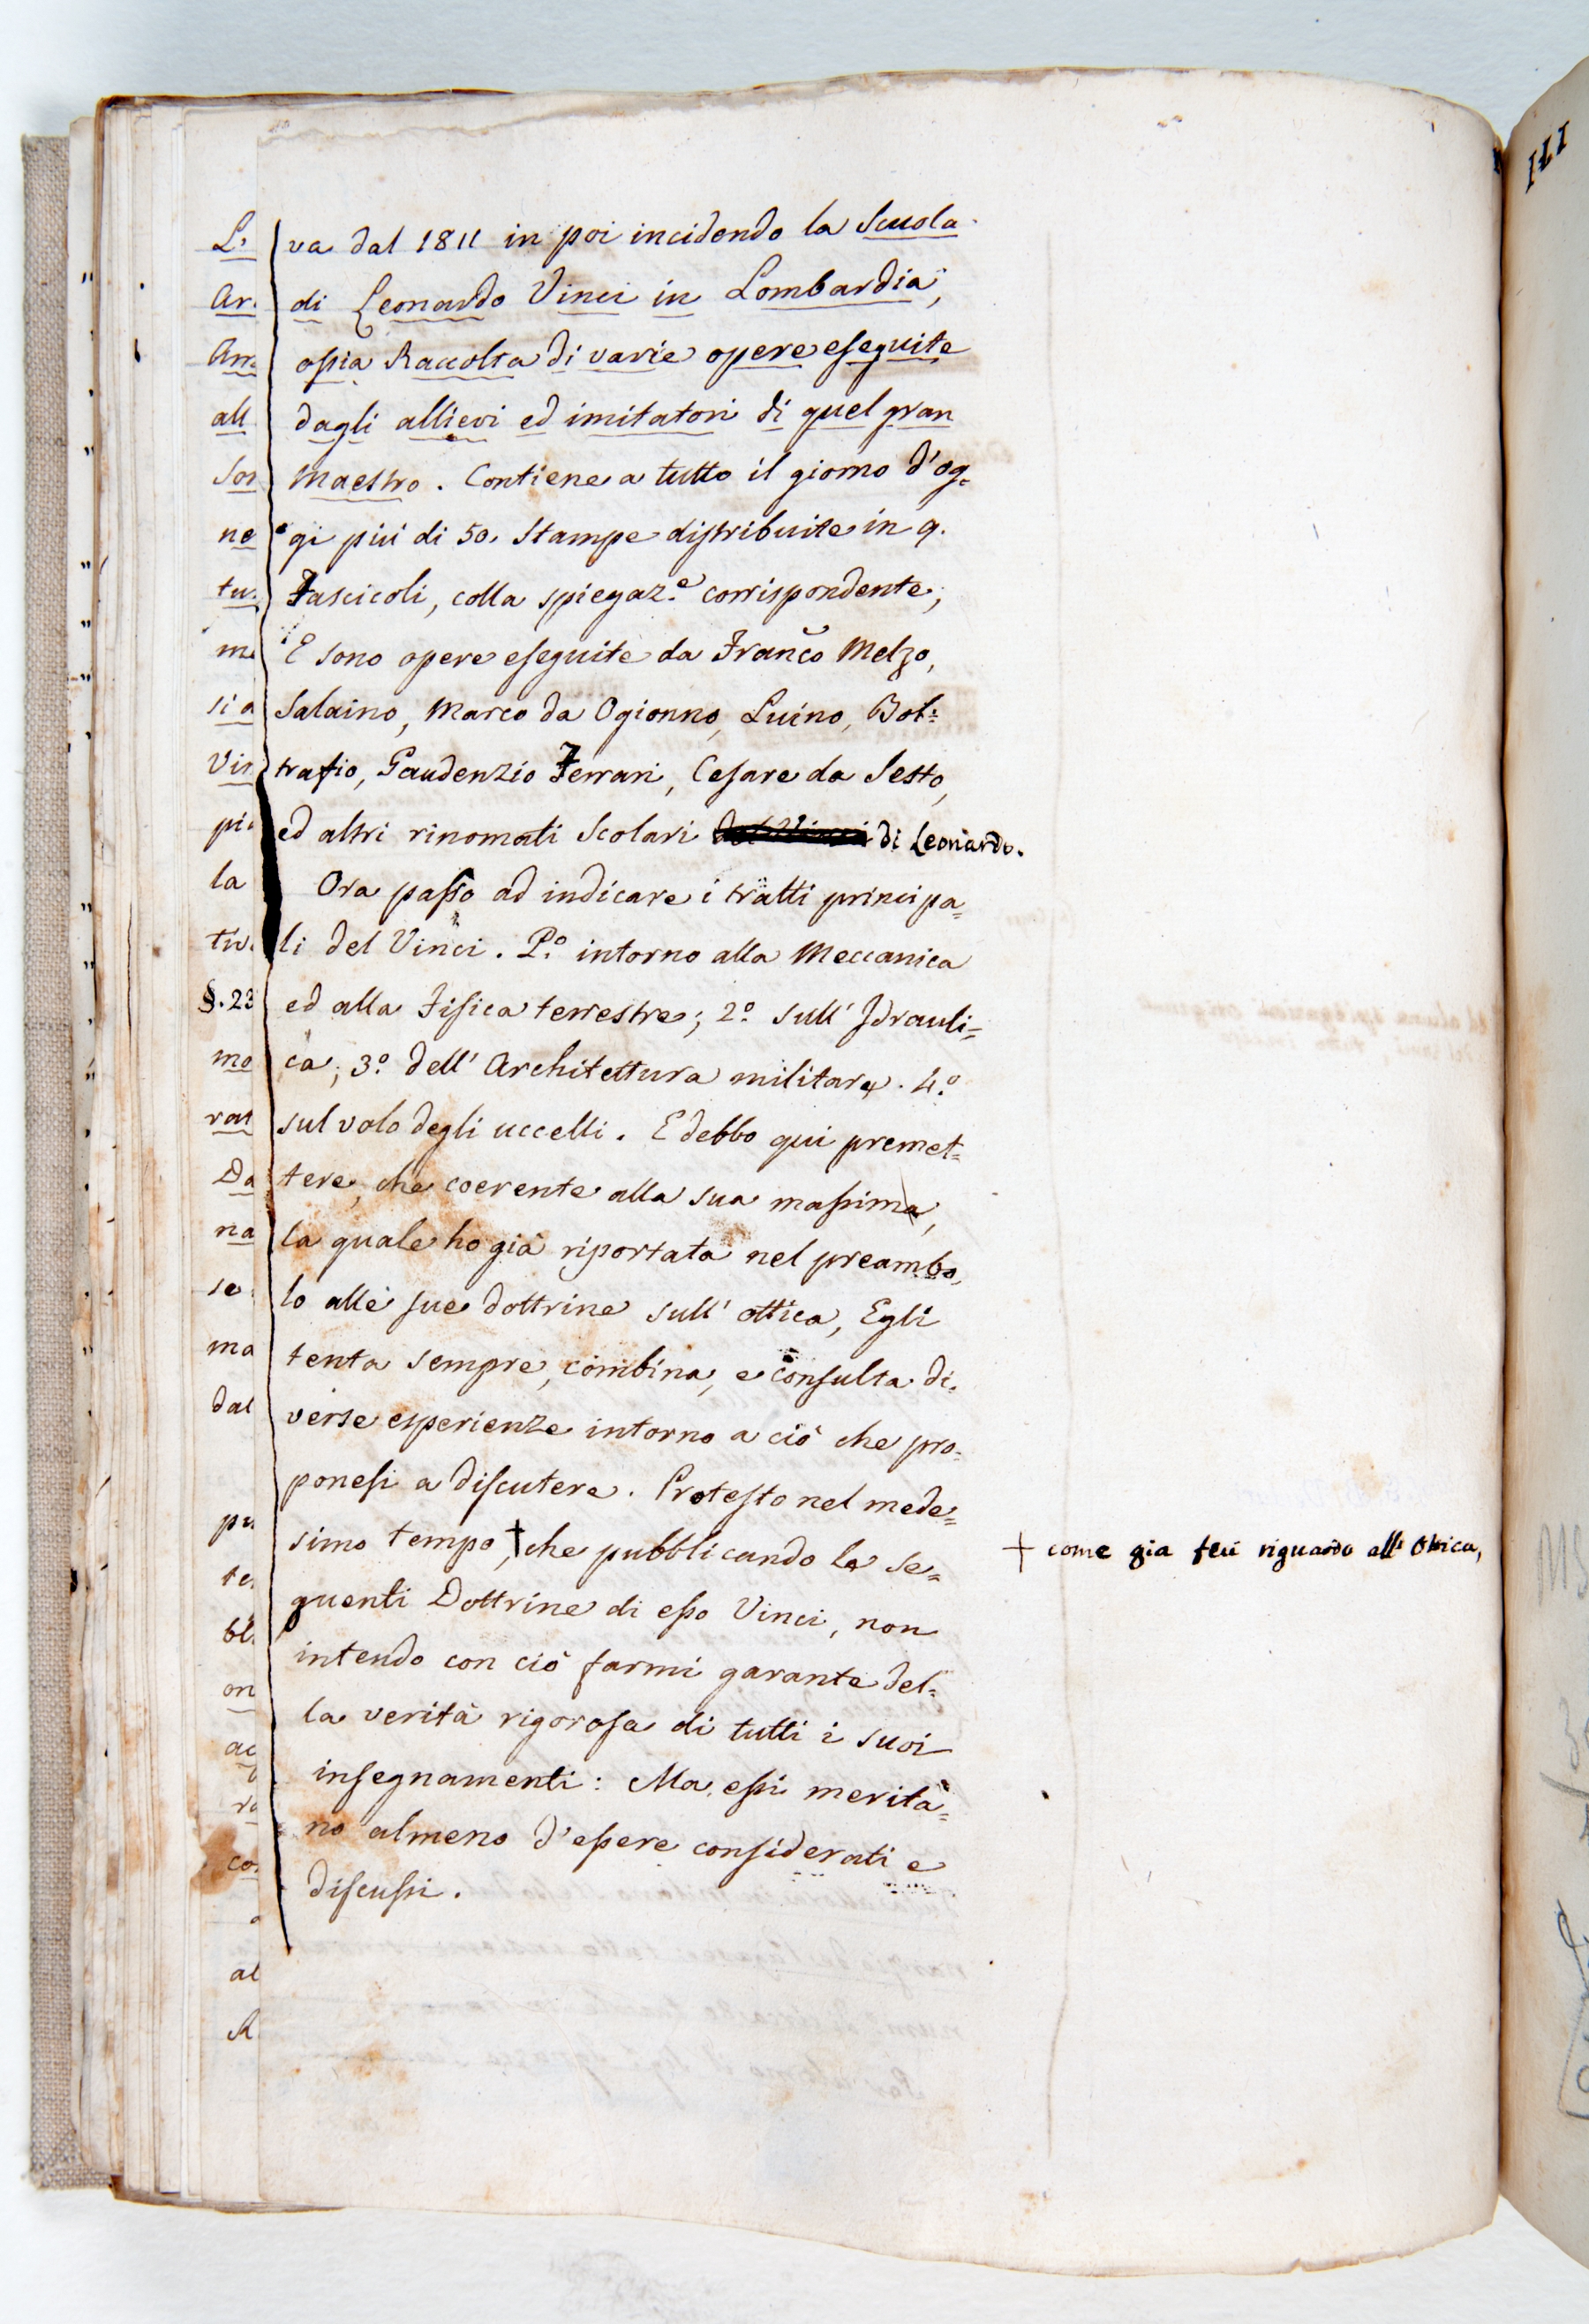 va dal 1811 in poi incidendo la Scuola
di Leonardo Vinci in Lombardia,
ossia Raccolta di varie opere eseguite
dagli allievi ed imitatori di quel gran
Maestro. Contiene a tutto il giorno d'og=
gi più di 50. Stampe distribuite in 9.
Fascicoli, colla spiegaz.e corrispondente;
E sono opere eseguite da Franc̃o Melzo,
Salaino, Marco da Ogionno, Luino, Bol=
trafio, Gaudenzio Ferrari, Cesare da Sesto,
ed altri rinomati Scolari di Leonardo.
Ora passo ad indicare i tratti principa=
li del Vinci. P.o intorno alla Meccanica
ed alla Fisica terrestre; 2.o sull' Idrauli=
ca; 3.o dell' Architettura militare. 4.o
sul volo degli uccelli. E debbo qui premet=
tere, che coerente alla sua massima,
la quale ho già riportata nel preambo=
lo alle sue dottrine sull' ottica, Egli
tenta sempre, combina, e consulta di=
verse esperienze intorno a ciò che pro=
ponesi a discutere. Protesto nel mede=
simo tempo, † che pubblicando le se=
guenti Dottrine di esso Vinci, non
intendo con ciò farmi garante del=
la verità rigorosa di tutti i suoi
insegnamenti: Ma essi merita=
no almeno d'essere considerati e
discussi.
† come gia feci riguardo all' Ottica,
L'
Ar
all
ne
tu
si a
Vin
la
§. 23
mo
Da
na
se
ma
dal
te
on
co
al
R